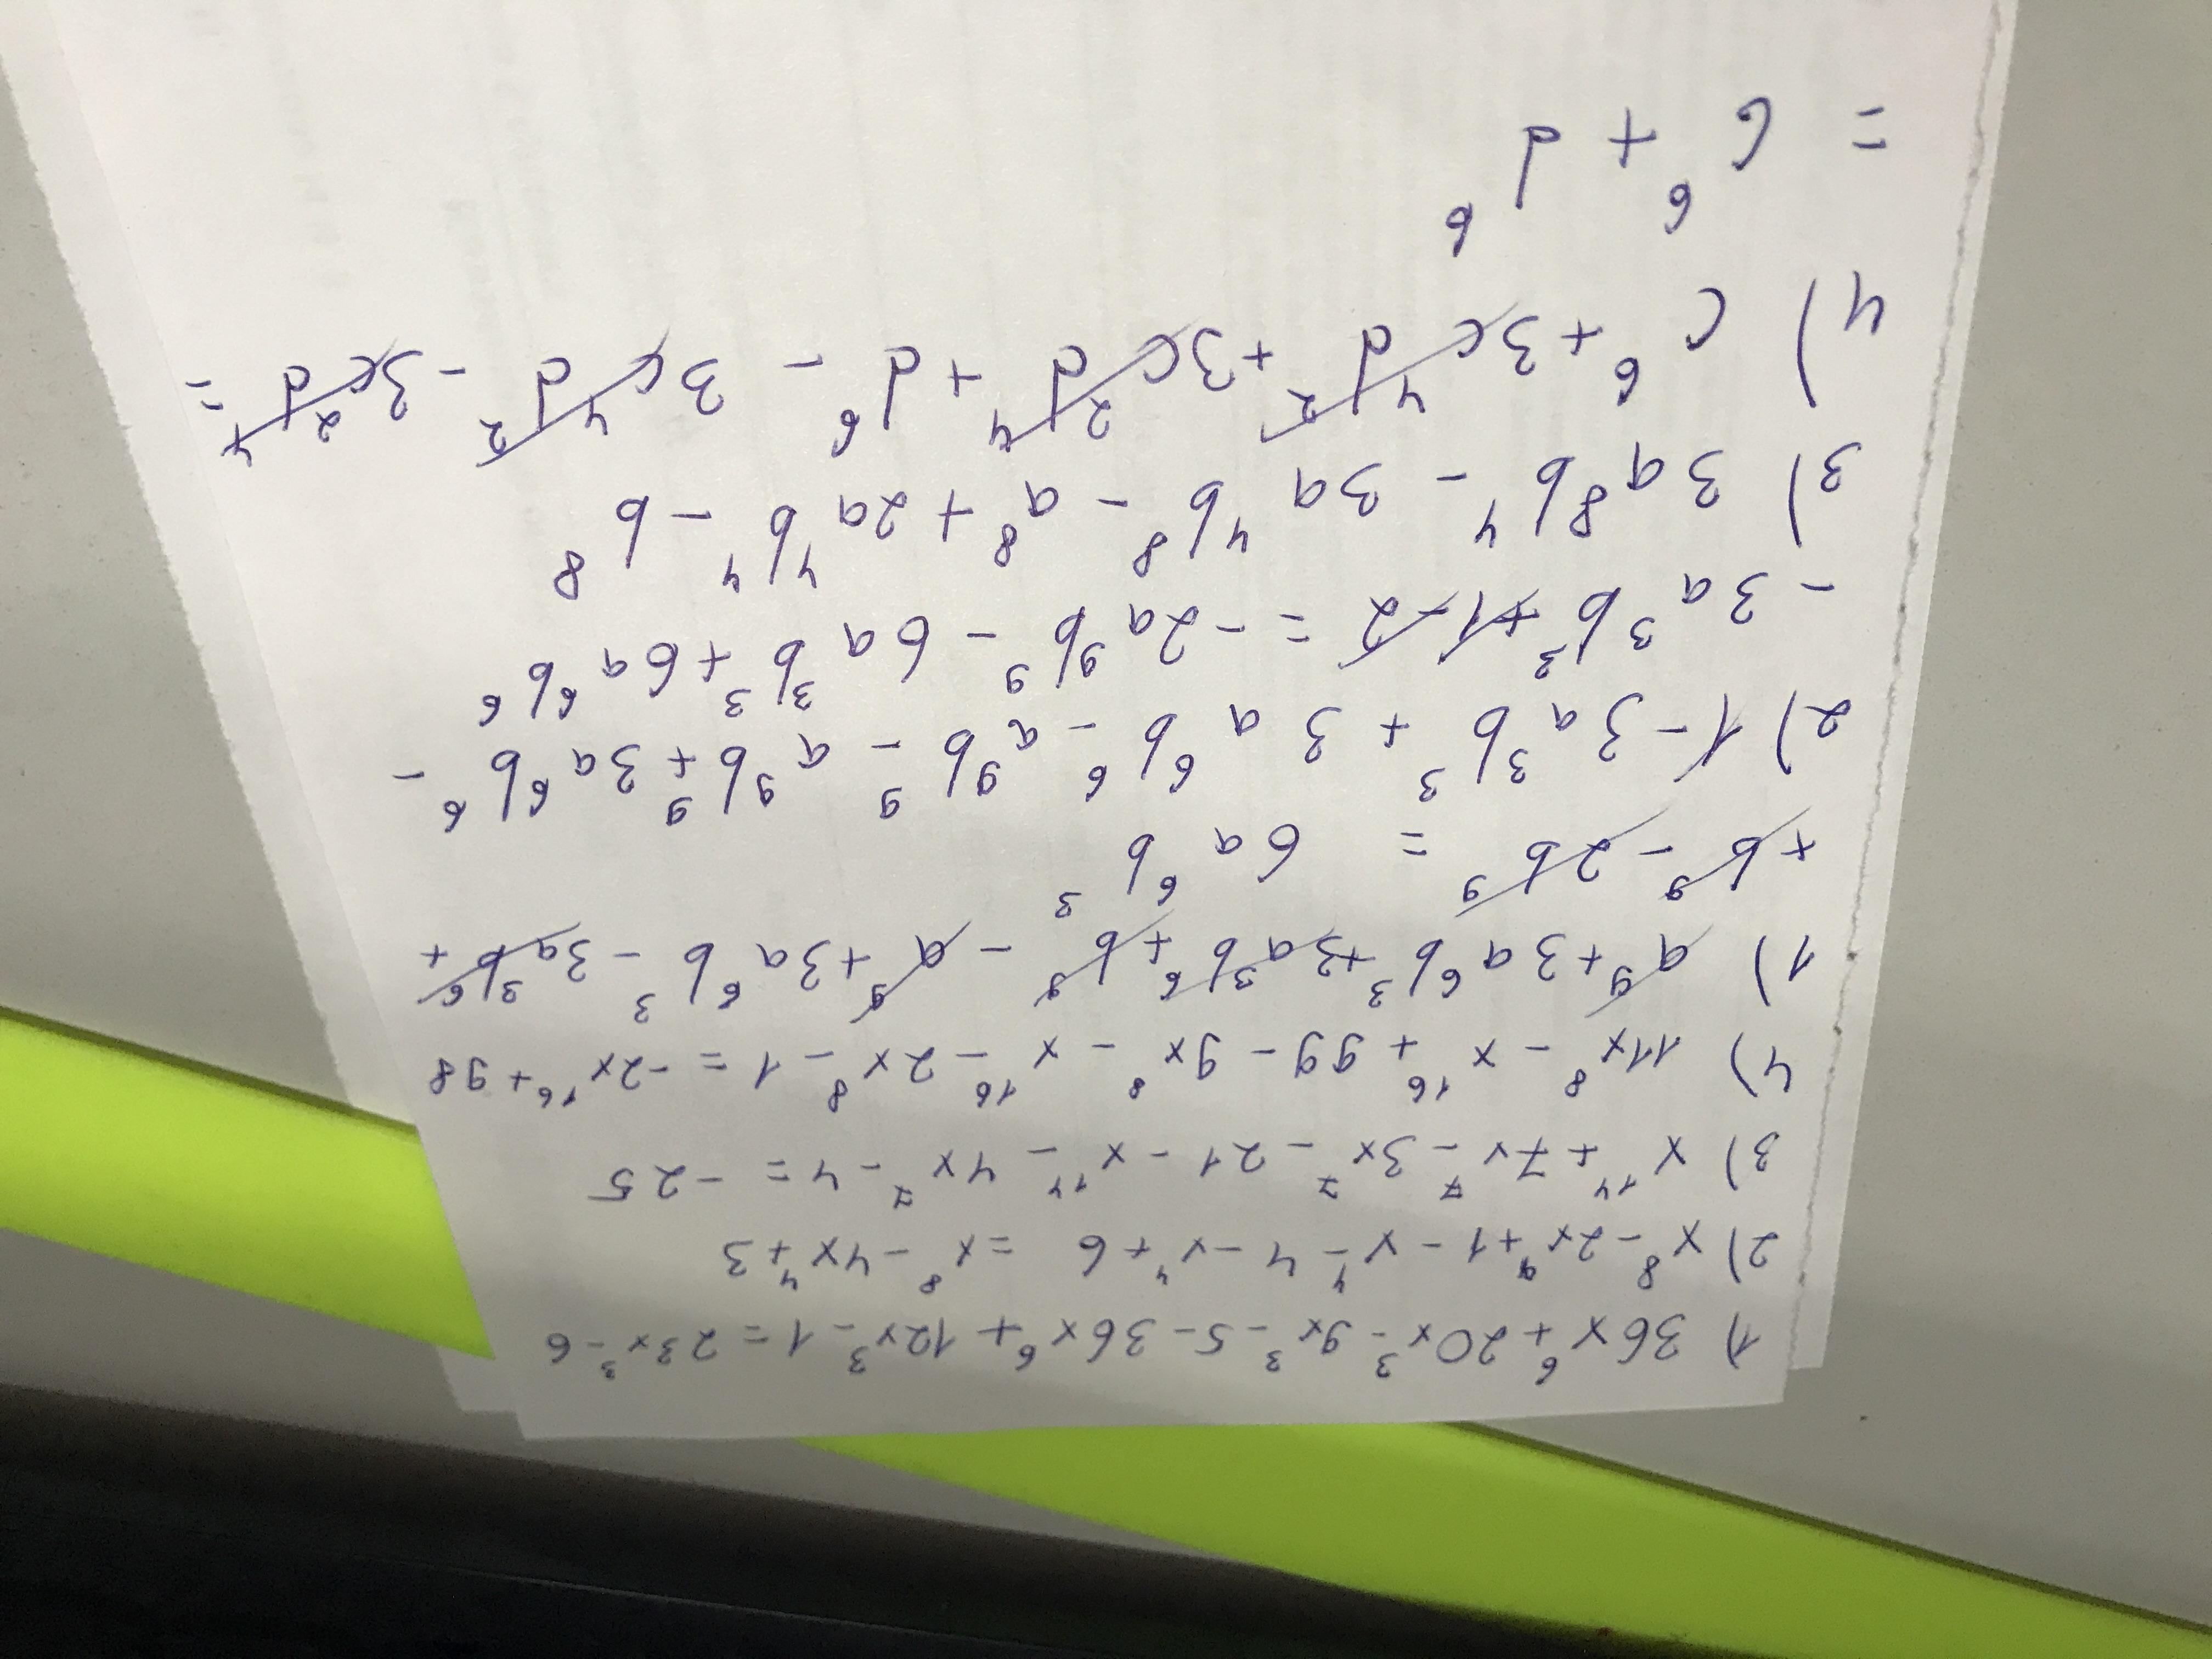 1) 36x⁶ + 20x³ - 9x³ - 5 - 36x⁶ + 12x³ - 1 = 23x³ - 6
2) x⁸ - 2x⁴ + 1 - x⁴ - 4 - x⁴ + 6 = x⁸ - 4x⁴ + 3
3) x¹⁴ + 7x⁷ - 3x⁷ - 21 - x¹⁴ - 4x⁷ - 4 = -25
4) 11x⁸ - x¹⁶ + 99 - 9x⁸ - x¹⁶ - 2x⁸ - 1 = -2x¹⁶ + 98
1) a⁹ + 3a⁶b³ + 3a³b⁶ + b⁹ - a⁹ + 3a⁶b³ - 3a³b⁶ +
+ b⁹ - 2b⁹ = 6a⁶b³
2) 1 - 3a³b³ + 3a⁶b⁶ - a⁹b⁹ - a⁹b⁹ + 3a⁶b⁶ -
- 3a³b³ + 1 - 2 = -2a⁹b⁹ - 6a³b³ + 6a⁶b⁶
3) 3a⁸b⁴ - 3a⁴b⁸ - a⁸ + 2a⁴b⁴ - b⁸
4) c⁶ + 3c⁴d² + 3c²d⁴ + d⁶ - 3c⁴d² - 3c²d⁴ =
= c⁶ + d⁶